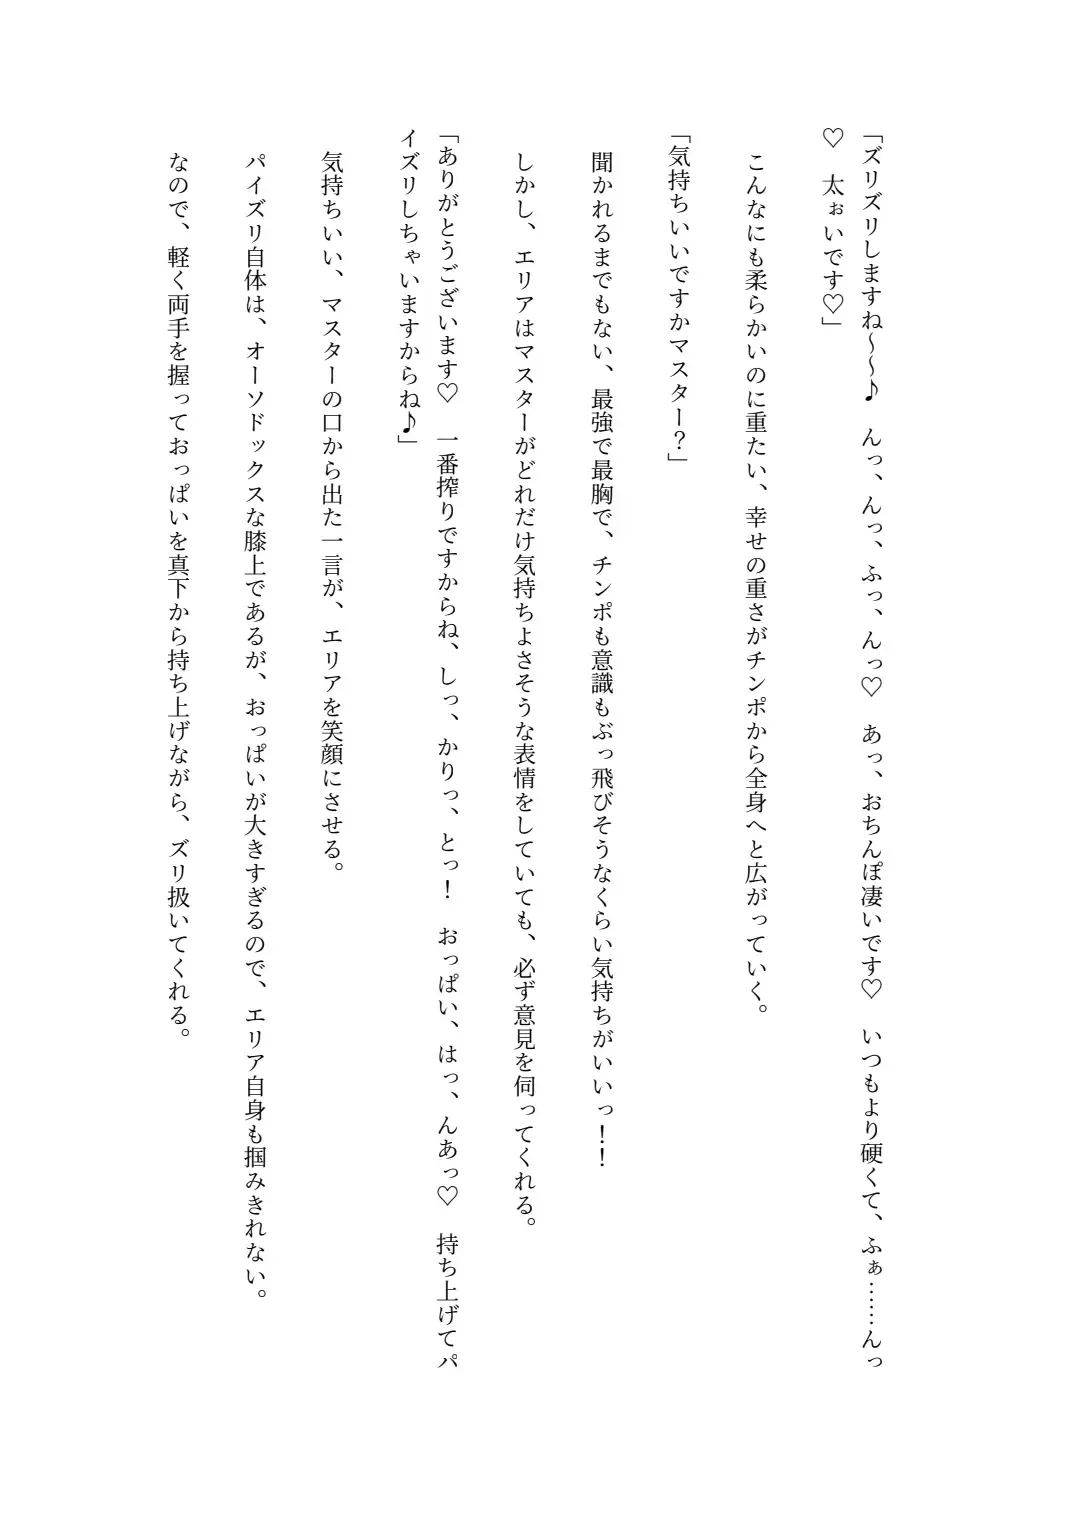 「ズリズリしますね～～♪　んっ、んっ、ふっ、んっ♡　あっ、おちんぽ凄いです♡　いつもより硬くて、ふぁ……んっ
♡　太ぉいです♡」
こんなにも柔らかいのに重たい、幸せの重さがチンポから全身へと広がっていく。
「気持ちいいですかマスター？」
聞かれるまでもない、最強で最胸で、チンポも意識もぶっ飛びそうなくらい気持ちがいいっ！！
しかし、エリアはマスターがどれだけ気持ちよさそうな表情をしていても、必ず意見を伺ってくれる。
「ありがとうございます♡　一番搾りですからね、しっ、かりっ、とっ！　おっぱい、はっ、んあっ♡　持ち上げてパ
イズリしちゃいますからね♪」
気持ちいい、マスターの口から出た一言が、エリアを笑顔にさせる。
パイズリ自体は、オーソドックスな膝上であるが、おっぱいが大きすぎるので、エリア自身も掴みきれない。
なので、軽く両手を握っておっぱいを真下から持ち上げながら、ズリ扱いてくれる。